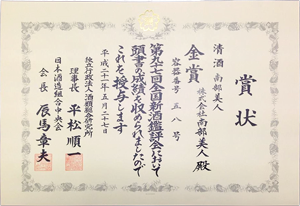 賞状
清酒 南部美人
株式会社南部美人 殿
金賞
容器番号 五八号
第九十七回全国新酒鑑評会において
頭書の成績を収められましたので
これを授与します
平成二十一年五月二十七日
独立行政法人酒類総合研究所
理事長 平松順一
日本酒造組合中央会
会長 辰馬章夫